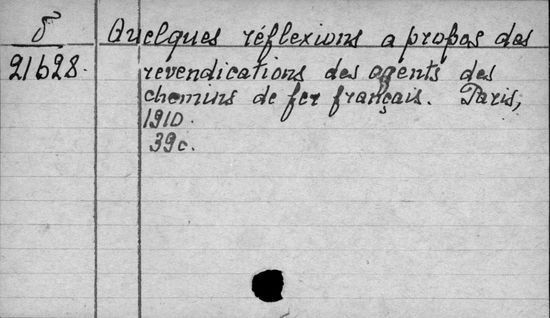 δ Quelques réflexions a propos des
21628. revendications des agents des
chemins de fer français. Paris,
1910.
39c.